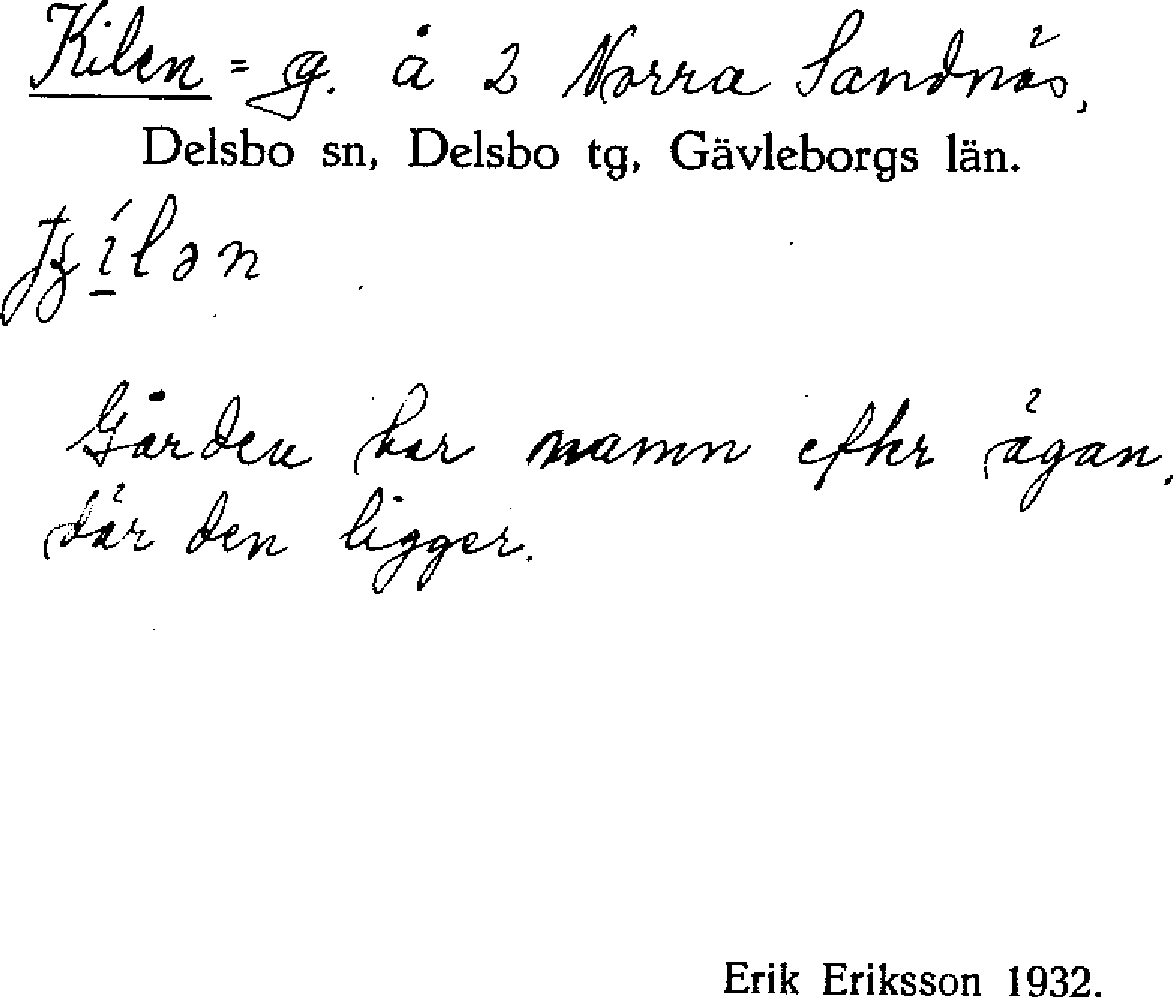 Kilen = g. å 2 Norra Sandnäs,
Delsbo sn, Delsbo tg, Gävleborgs län.
Gården har namn efter ägan,
där den ligger.
Erik Eriksson 1932.